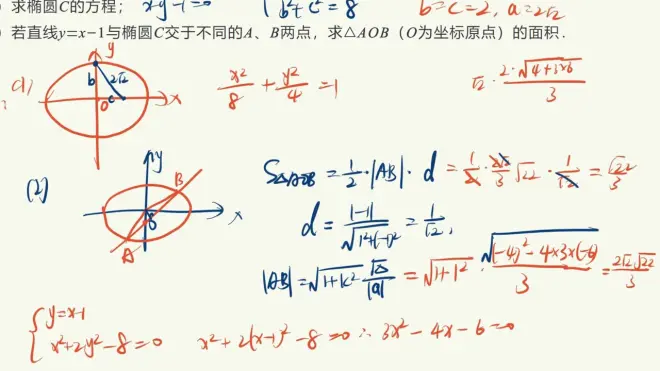 求椭圆C的方程；
b²+c²=8
b=c=2, a=2√2
若直线y=x-1与椭圆C交于不同的A、B两点，求△AOB（O为坐标原点）的面积.
(1)
y
b
2√2
O
c
x
x²/8 + y²/4 = 1
√2 · 2·√(4+3×6) / 3
(2)
y
B
O
x
A
S△AOB = 1/2 · |AB| · d = 1/2 · 2√2/3 √22 · 1/√2 = √22/3
d = |-1|/√(1²+(-1)²) = 1/√2,
|AB| = √(1+k²) √Δ/|a| = √(1+1²) · √((-4)²-4×3×(-6))/3 = 2√2·√22/3
{ y=x-1
x²+2y²-8=0 x²+2(x-1)²-8=0 ∴ 3x²-4x-6=0